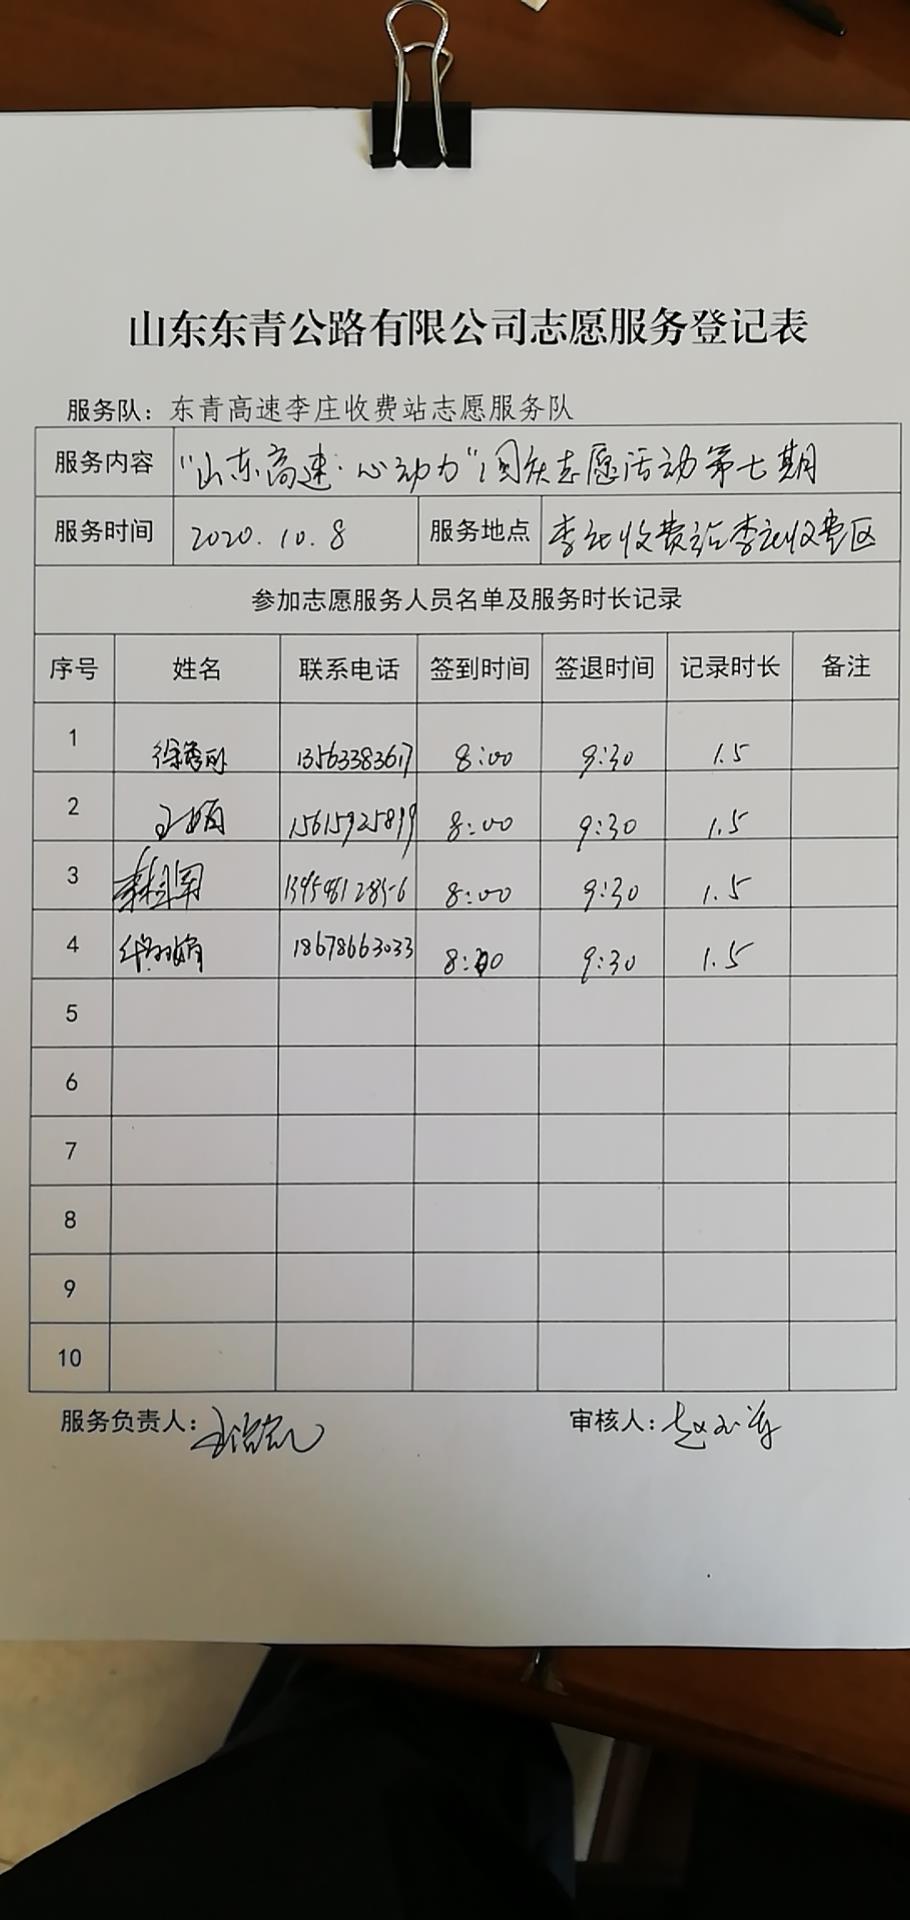 山东东青公路有限公司志愿服务登记表
服务队：东青高速李庄收费站志愿服务队
服务内容 "山东高速·心动力"国庆志愿活动第七期
服务时间 2020.10.8 服务地点 李庄收费站李庄收费区
参加志愿服务人员名单及服务时长记录
序号 姓名 联系电话 签到时间 签退时间 记录时长 备注
1 徐秀丽 13563383617 8:00 9:30 1.5
2 王娟 15615925899 8:00 9:30 1.5
3 8:00 9:30 1.5
4 18678663033 8:00 9:30 1.5
5
6
7
8
9
10
服务负责人： 审核人：